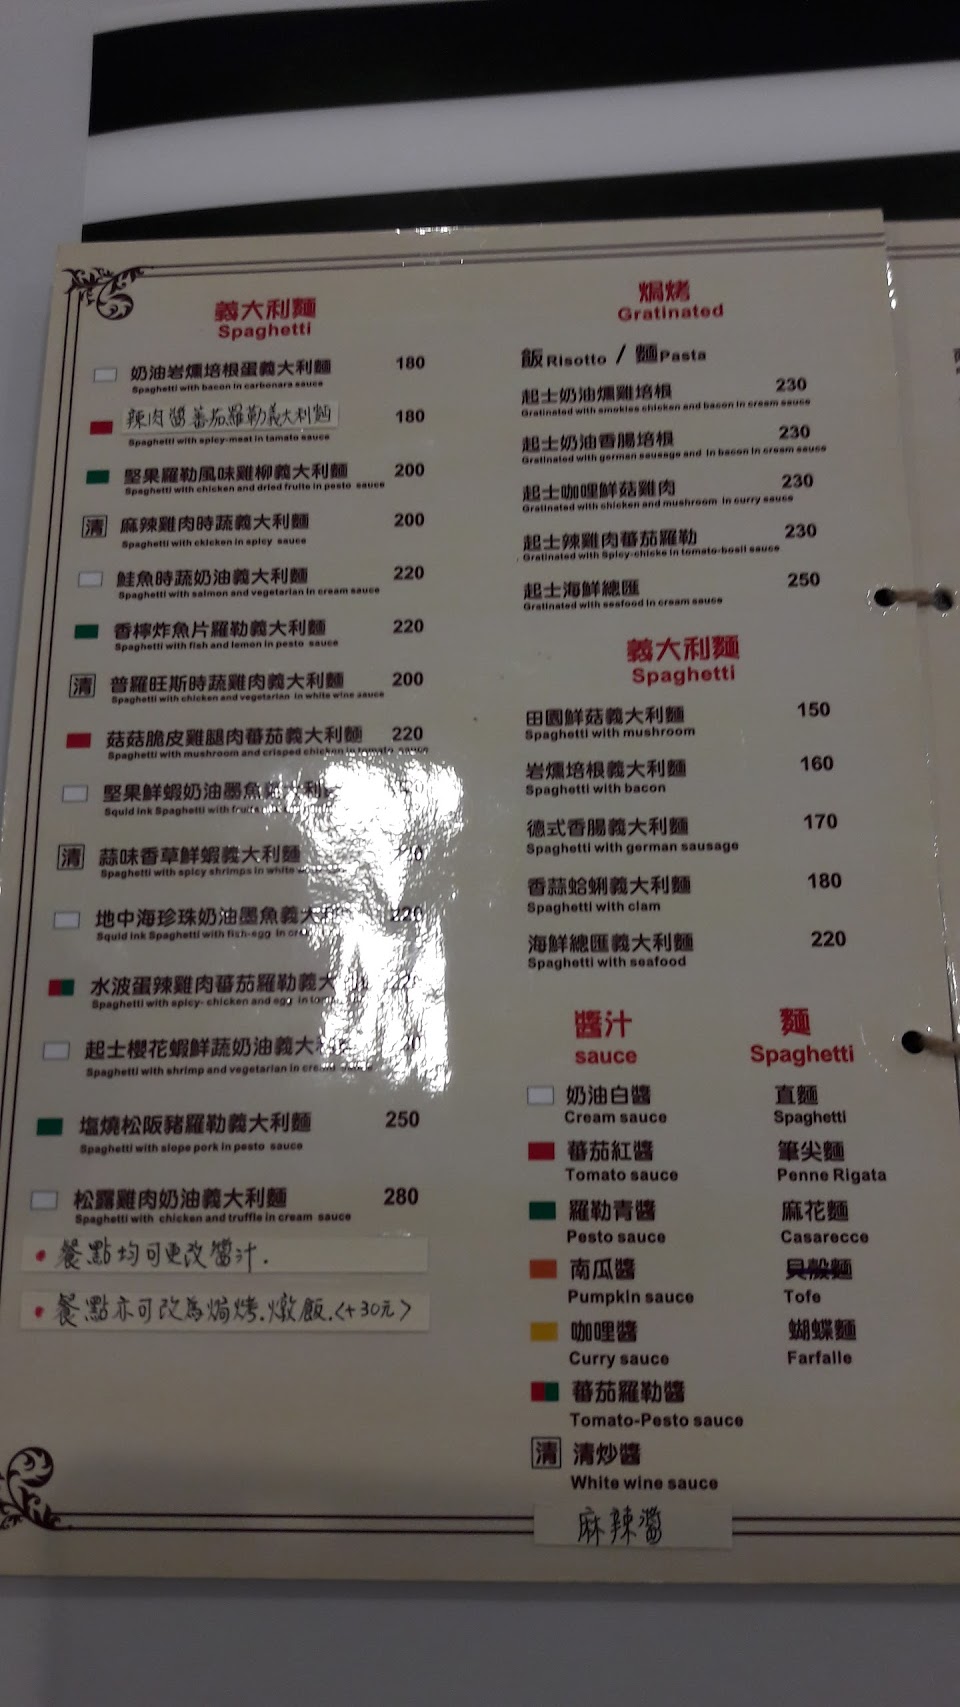 義大利麵
Spaghetti
奶油岩燻培根蛋義大利麵 180
Spaghetti with bacon in carbonara sauce
辣肉醬蕃茄羅勒義大利麵 180
Spaghetti with spicy-meat in tamato sauce
堅果羅勒風味雞柳義大利麵 200
Spaghetti with chicken and dried fruits in pesto sauce
清 麻辣雞肉時蔬義大利麵 200
Spaghetti with ckicken in spicy sauce
鮭魚時蔬奶油義大利麵 220
Spaghetti with salmon and vegetarian in cream sauce
香檸炸魚片羅勒義大利麵 220
Spaghetti with fish and lemon in pesto sauce
清 普羅旺斯時蔬雞肉義大利麵 200
Spaghetti with chicken and vegetarian in white wine sauce
菇菇脆皮雞腿肉蕃茄義大利麵 220
Spaghetti with mushroom and crisped chicken in tomato sauce
堅果鮮蝦奶油墨魚
Squid ink Spaghetti with
清 蒜味香草鮮蝦義大利麵
Spaghetti with spicy shrimps in white
地中海珍珠奶油墨魚義大利 220
Squid ink Spaghetti with fish-egg in
水波蛋辣雞肉蕃茄羅勒義大
Spaghetti with spicy- chicken and egg in
起士櫻花蝦鮮蔬奶油義大
Spaghetti with shrimp and vegetarian in cream sauce
塩燒松阪豬羅勒義大利麵 250
Spaghetti with slope pork in pesto sauce
松露雞肉奶油義大利麵 280
Spaghetti with chicken and truffle in cream sauce
• 餐點均可更改醬汁.
• 餐點亦可改為焗烤.燉飯.<+30元>
焗烤
Gratinated
飯 Risotto / 麵 Pasta
起士奶油燻雞培根 230
Gratinated with smokies chicken and bacon in cream sauce
起士奶油香腸培根 230
Gratinated with german sausage and in bacon in cream sauce
起士咖哩鮮菇雞肉 230
Gratinated with chicken and mushroom in curry sauce
起士辣雞肉蕃茄羅勒 230
Gratinated with Spicy-chicke in tomato-basil sauce
起士海鮮總匯 250
Gratinated with seafood in cream sauce
義大利麵
Spaghetti
田園鮮菇義大利麵 150
Spaghetti with mushroom
岩燻培根義大利麵 160
Spaghetti with bacon
德式香腸義大利麵 170
Spaghetti with german sausage
香蒜蛤蜊義大利麵 180
Spaghetti with clam
海鮮總匯義大利麵 220
Spaghetti with seafood
醬汁 麵
sauce Spaghetti
奶油白醬 直麵
Cream sauce Spaghetti
蕃茄紅醬 筆尖麵
Tomato sauce Penne Rigata
羅勒青醬 麻花麵
Pesto sauce Casarecce
南瓜醬 貝殼麵
Pumpkin sauce Tofe
咖哩醬 蝴蝶麵
Curry sauce Farfalle
蕃茄羅勒醬
Tomato-Pesto sauce
清 清炒醬
White wine sauce
麻辣醬